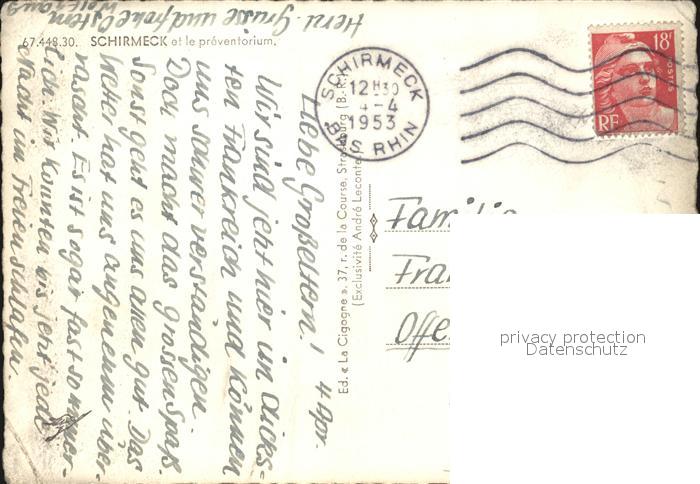 67.448.30. SCHIRMECK et le préventorium.
SCHIRMECK
12H30
4-4
1953
BAS RHIN
18f
POSTES
RF
4. Apr.
Liebe Großeltern!
Wir sind jetzt hier im dicks-
ten Frankreich und können
uns schwer verständigen
Doch macht das grossen Spaß.
Sonst geht es uns allen gut. Das
Wetter hat uns angenehm über-
rascht. Es ist sogar fast so
lich. Wir konnten bis jetzt jede
Nacht im Freien schlafen.
Herzl. Grüsse und frohe Ostern
Ed. « La Cigogne », 37, r. de la Course, Strasbourg (B.-R.)
(Exclusivité André Leconte)
Familie
Fra
Offe
privacy protection
Datenschutz